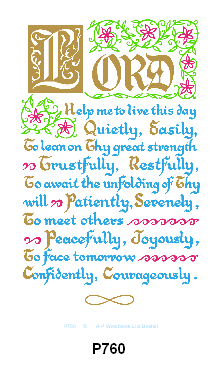 LORD
Help me to live this day
Quietly, Easily,
To lean on Thy great strength
Trustfully, Restfully,
To await the unfolding of Thy
will Patiently, Serenely,
To meet others
Peacefully, Joyously,
To face tomorrow
Confidently, Courageously.
P760